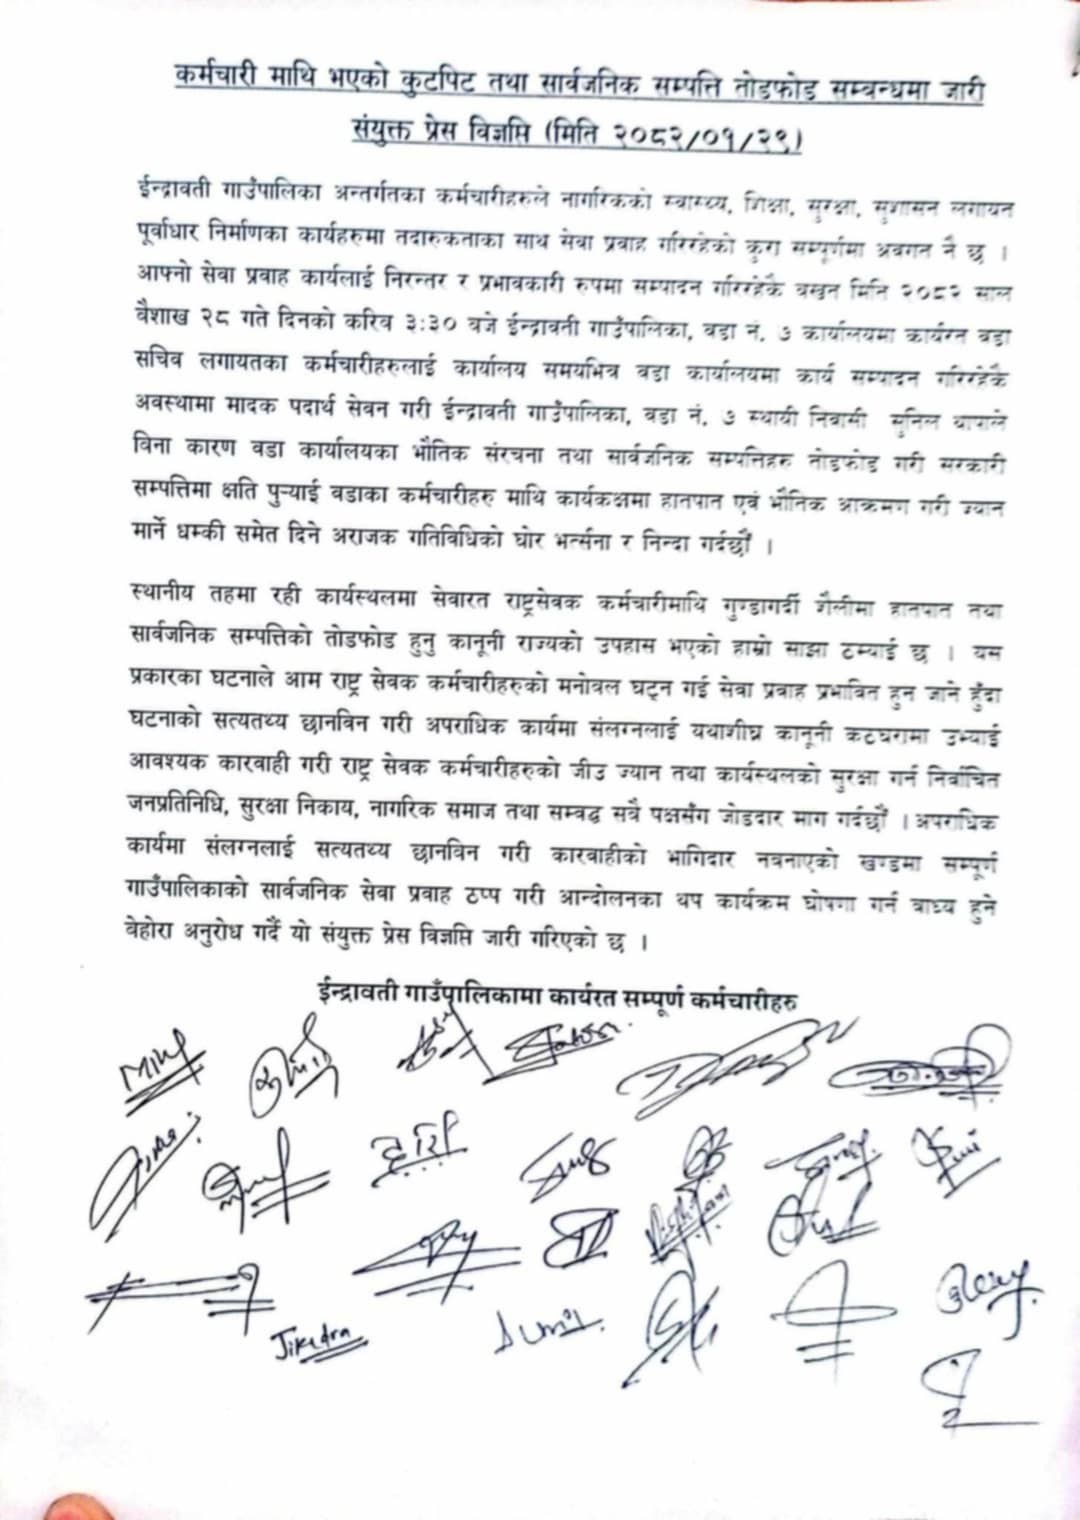 कर्मचारी माथि भएको कुटपिट तथा सार्वजनिक सम्पत्ति तोडफोड सम्बन्धमा जारी
संयुक्त प्रेस विज्ञप्ति (मिति २०८२/०१/२९)
ईन्द्रावती गाउँपालिका अन्तर्गतका कर्मचारीहरुले नागरिकको स्वास्थ्य, शिक्षा, सुरक्षा, सुशासन लगायत
पूर्वाधार निर्माणका कार्यहरुमा तदारुकताका साथ सेवा प्रवाह गरिरहेको कुरा सम्पूर्णमा अवगत नै छ ।
आफ्नो सेवा प्रवाह कार्यलाई निरन्तर र प्रभावकारी रुपमा सम्पादन गरिरहेकै बखत मिति २०८२ साल
वैशाख २८ गते दिनको करिव ३:३० वजे ईन्द्रावती गाउँपालिका, वडा नं. ७ कार्यालयमा कार्यरत वडा
सचिव लगायतका कर्मचारीहरुलाई कार्यालय समयभित्र वडा कार्यालयमा कार्य सम्पादन गरिरहेकै
अवस्थामा मादक पदार्थ सेवन गरी ईन्द्रावती गाउँपालिका, वडा नं. ७ स्थायी निवासी सुनिल थापाले
विना कारण वडा कार्यालयका भौतिक संरचना तथा सार्वजनिक सम्पत्तिहरु तोडफोड गरी सरकारी
सम्पत्तिमा क्षति पुऱ्याई वडाका कर्मचारीहरु माथि कार्यकक्षमा हातपात एवं भौतिक आक्रमण गरी ज्यान
मार्ने धम्की समेत दिने अराजक गतिविधिको घोर भर्त्सना र निन्दा गर्दछौं ।
स्थानीय तहमा रही कार्यस्थलमा सेवारत राष्ट्रसेवक कर्मचारीमाथि गुण्डागर्दी शैलीमा हातपात तथा
सार्वजनिक सम्पत्तिको तोडफोड हुनु कानूनी राज्यको उपहास भएको हाम्रो साझा ठम्याई छ । यस
प्रकारका घटनाले आम राष्ट्र सेवक कर्मचारीहरुको मनोवल घट्न गई सेवा प्रवाह प्रभावित हुन जाने हुँदा
घटनाको सत्यतथ्य छानविन गरी अपराधिक कार्यमा संलग्नलाई यथाशीघ्र कानूनी कटघरामा उभ्याई
आवश्यक कारवाही गरी राष्ट्र सेवक कर्मचारीहरुको जीउ ज्यान तथा कार्यस्थलको सुरक्षा गर्न निर्वाचित
जनप्रतिनिधि, सुरक्षा निकाय, नागरिक समाज तथा सम्वद्ध सबै पक्षसँग जोडदार माग गर्दछौं । अपराधिक
कार्यमा संलग्नलाई सत्यतथ्य छानविन गरी कारवाहीको भागिदार नबनाएको खण्डमा सम्पूर्ण
गाउँपालिकाको सार्वजनिक सेवा प्रवाह ठप्प गरी आन्दोलनका थप कार्यक्रम घोषणा गर्न बाध्य हुने
बेहोरा अनुरोध गर्दै यो संयुक्त प्रेस विज्ञप्ति जारी गरिएको छ ।
ईन्द्रावती गाउँपालिकामा कार्यरत सम्पूर्ण कर्मचारीहरु
हरि